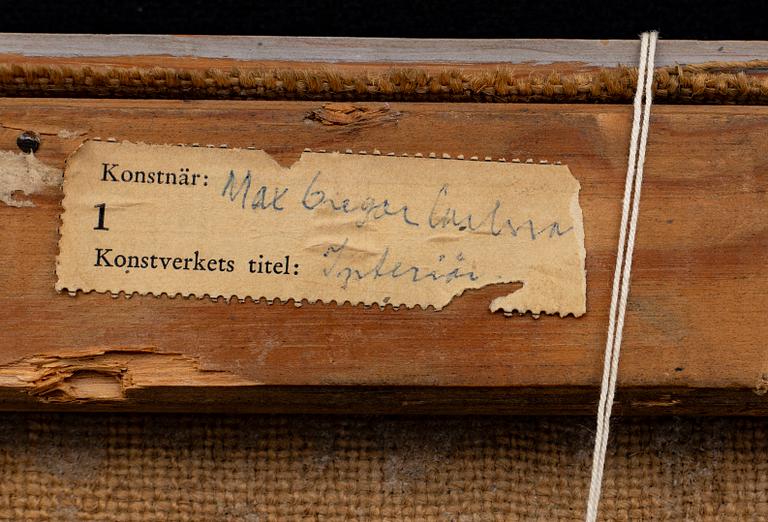 Konstnär: Max Gregor Carlsson
1
Konstverkets titel: Interiör.